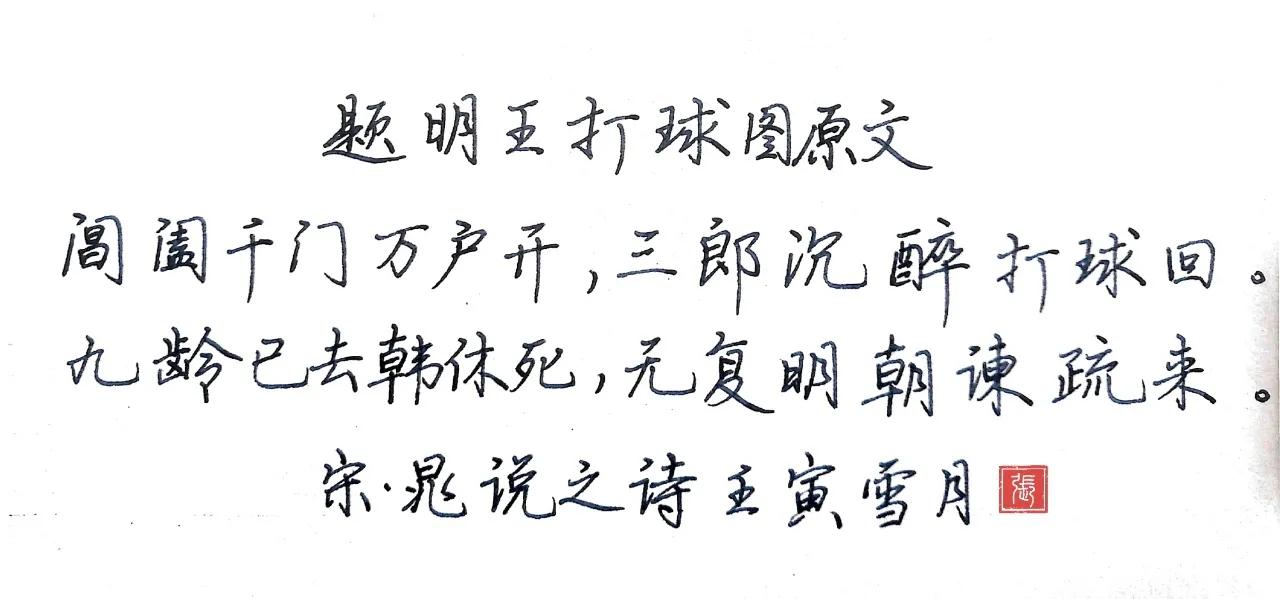 题明王打球图原文
阊阖千门万户开，三郎沉醉打球回。
九龄已去韩休死，无复明朝谏疏来。
宋·晁说之诗王寅雪月
張